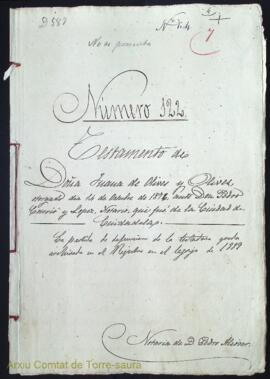 D 587
No se presenta
7
Número 122
Testamento de
Doña Juana de Olives y Olives
otorgado dia 14 de Octubre de 1896, ante Don Pedro
y Lopez, Notario que fué de la Ciudad de
Ciudadela
La partida de defuncion de la testadora queda
archivada en el Registro en el legajo de 1929
Notaria de D. Pedro
Arxiu Comtat de Torre-saura